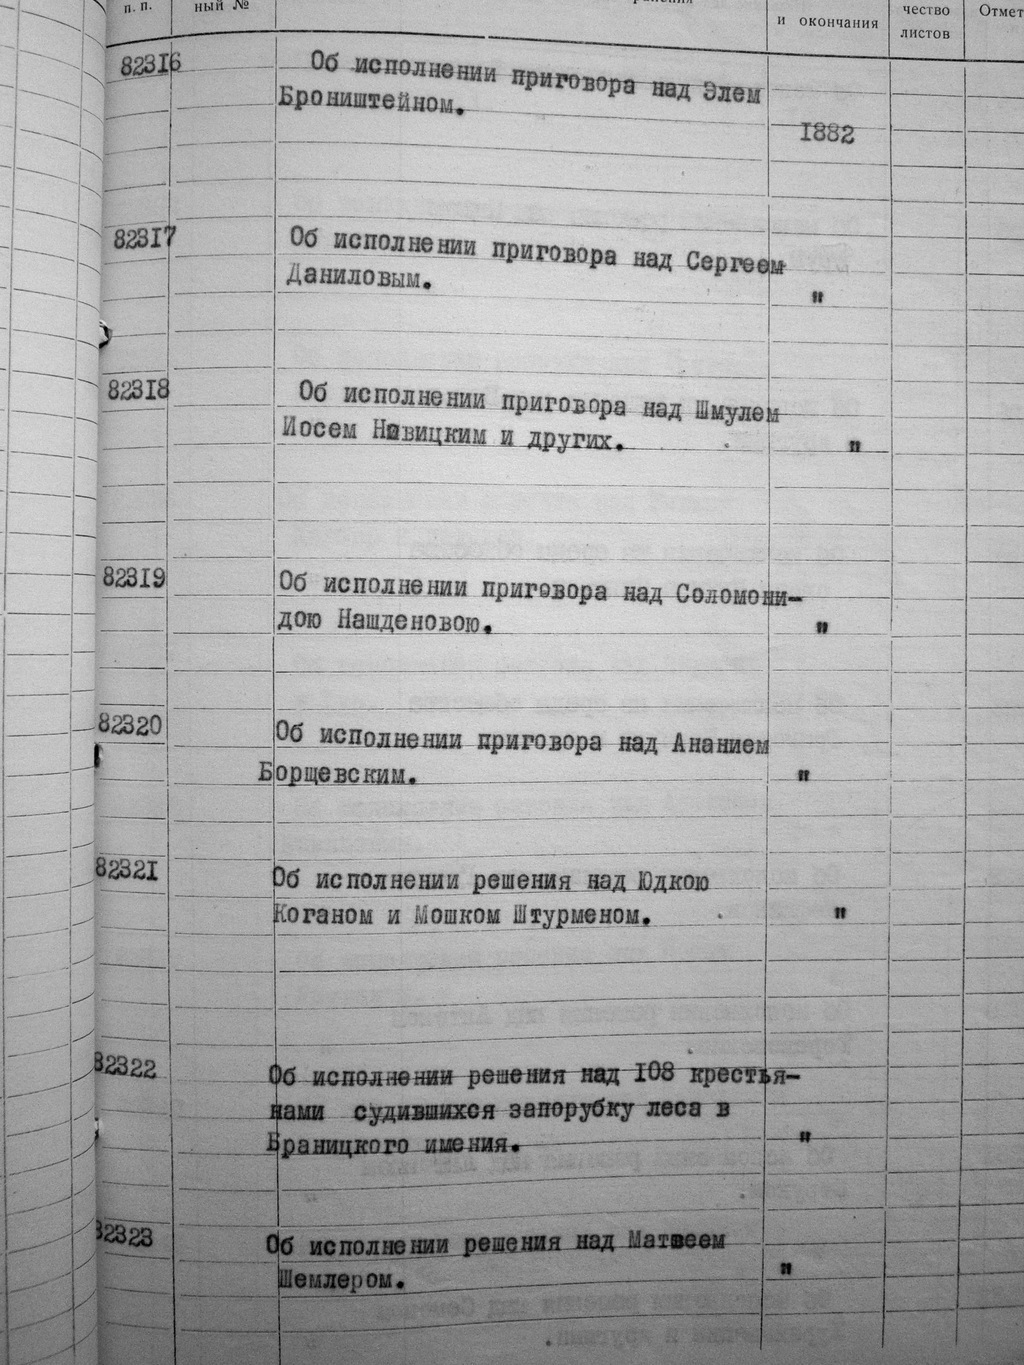 п. п. ный № и окончания чество листов Отмет
82316 Об исполнении приговора над Элем
Бронштейном.
1882
82317 Об исполнении приговора над Сергеем
Даниловым. "
82318 Об исполнении приговора над Шмулем
Иосем Новицким и других. "
82319 Об исполнении приговора над Соломони-
дою Нашденовою. "
82320 Об исполнении приговора над Ананием
Борщевским. "
82321 Об исполнении решения над Юдкою
Коганом и Мошком Штурменом. "
82322 Об исполнении решения над 108 крестья-
нами судившихся запорубку леса в
Браницкого имения. "
82323 Об исполнении решения над Матвеем
Шемлером. "